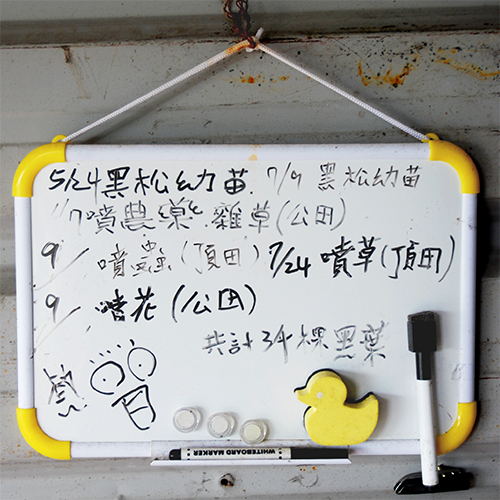 5/24黑松幼苗. 7/9 黑松幼苗
/7噴農藥.雜草(公田)
9/ 噴蟲(頂田) 7/24 噴草(頂田)
9/ 噴花(公田)
共計34棵黑葉
WHITEBOARD MARKER